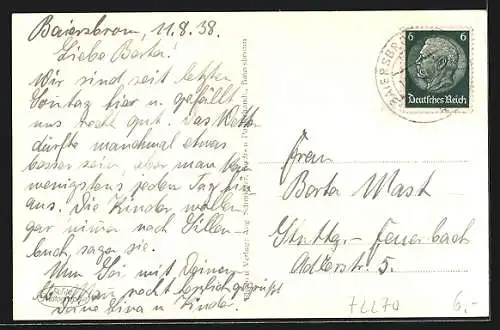 Baiersbronn, 11.8.38.
Liebe Berta!
Wir sind seit letzten
Sonntag hier u. gefällt
uns recht gut. Das Wetter
dürfte manchmal etwas
besser sein, aber man kann
wenigstens jeden Tag hin-
aus. Die Kinder wollen
gar nimmer nach Sillen-
buch, sagen sie.
Nun sei mit Deinen
noch herzlich gegrüßt
Deine Lina u. Kinder.
6 6
Deutsches Reich
BAIERSBR
Frau
Berta Mast
Stuttg.-Feuerbach
Adlerstr. 5.
72270
6,-